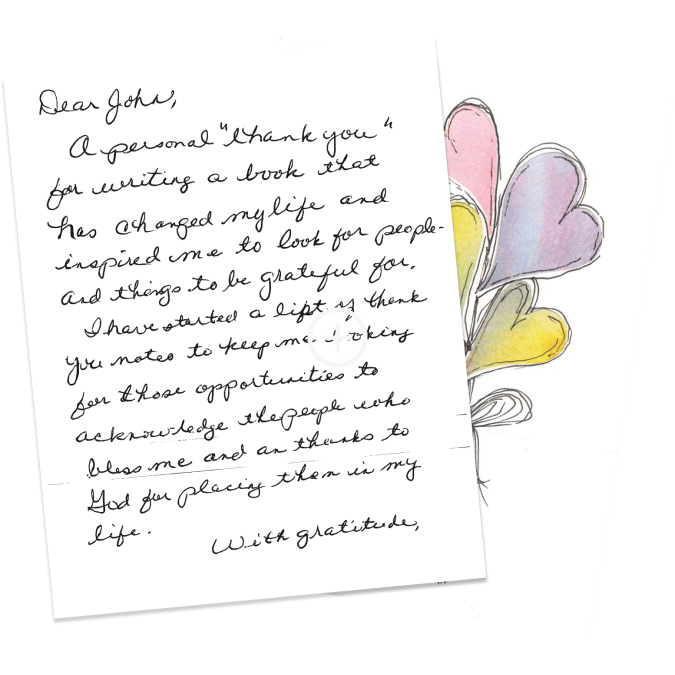 Dear John,
A personal "thank you"
for writing a book that
has changed my life and
inspired me to look for people-
and things to be grateful for.
I have started a list of thank
you notes to keep me looking
for those opportunities to
acknowledge the people who
bless me and an thanks to
God for placing them in my
life.
With gratitude,